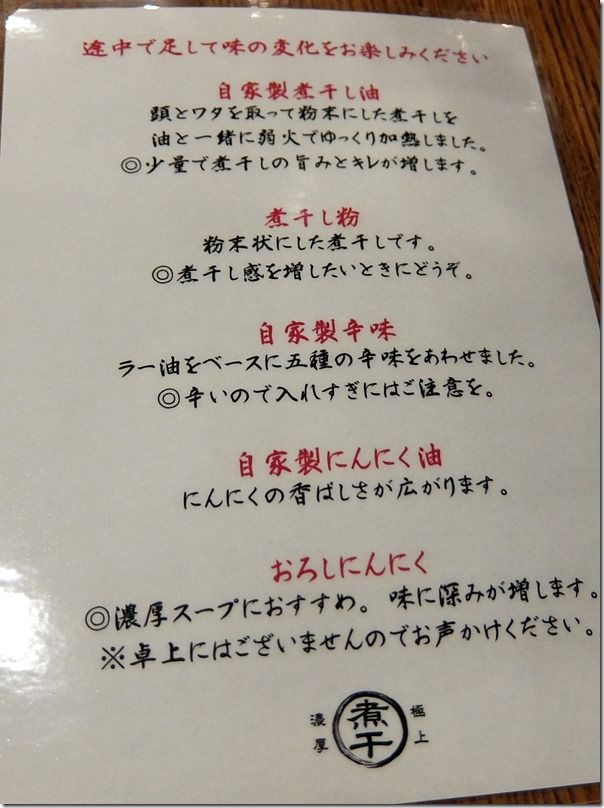 途中で足して味の変化をお楽しみください
自家製煮干し油
頭とワタを取って粉末にした煮干しを
油と一緒に弱火でゆっくり加熱しました。
◎少量で煮干しの旨みとキレが増します。
煮干し粉
粉末状にした煮干しです。
◎煮干し感を増したいときにどうぞ。
自家製辛味
ラー油をベースに五種の辛味をあわせました。
◎辛いので入れすぎにはご注意を。
自家製にんにく油
にんにくの香ばしさが広がります。
おろしにんにく
◎濃厚スープにおすすめ。味に深みが増します。
※卓上にはございませんのでお声かけください。
極上
煮干
濃厚